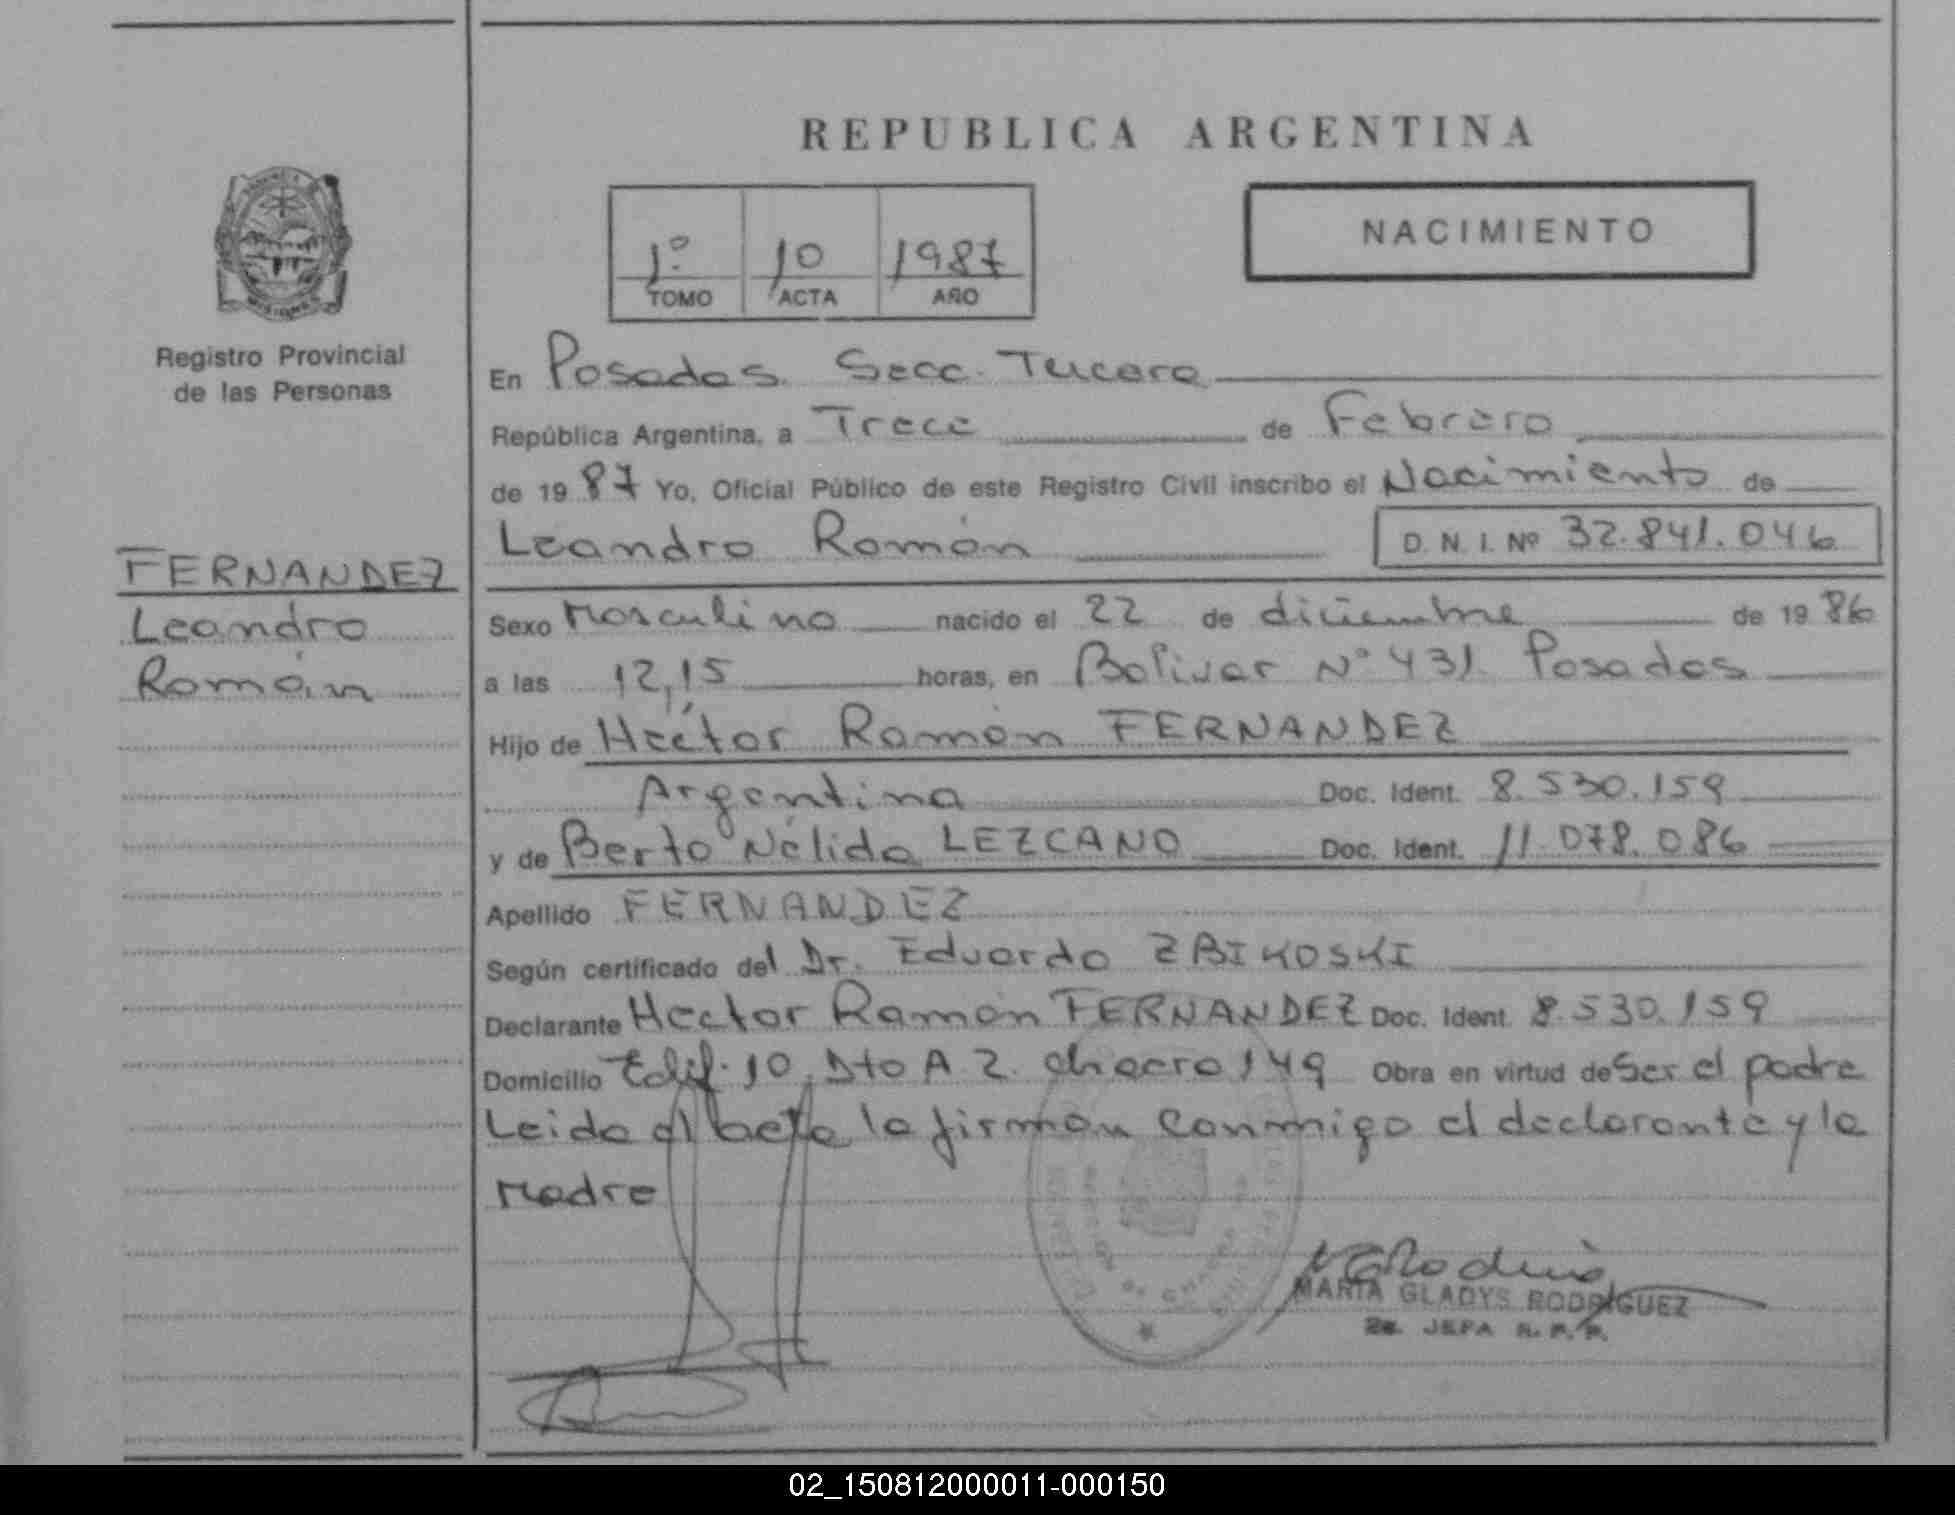 REPUBLICA ARGENTINA
NACIMIENTO
1º 10 1987
TOMO ACTA AÑO
Registro Provincial
de las Personas
FERNANDEZ
Leandro
Román
En Posadas. Secc. Tercera
República Argentina, a Trece de Febrero
de 1987 Yo, Oficial Público de este Registro Civil inscribo el Nacimiento de
Leandro Román D. N. I. Nº 32.841.046
Sexo Masculino nacido el 22 de diciembre de 1986
a las 12,15 horas, en Bolivar Nº 431. Posadas
Hijo de Héctor Ramón FERNANDEZ
Argentina Doc. Ident. 8.530.159
y de Berta Nélida LEZCANO Doc. Ident. 11.078.086
Apellido FERNANDEZ
Según certificado del Dr. Eduardo ZBIKOSKI
Declarante Hector Ramón FERNANDEZ Doc. Ident. 8.530.159
Domicilio Edif. 10. Dto A 2. chacra 149 Obra en virtud de Ser el padre
Leida el acta la firman conmigo el declarante y la
Madre
MARIA GLADYS RODRIGUEZ
2a. JEFA R. P. P.
02_150812000011-000150